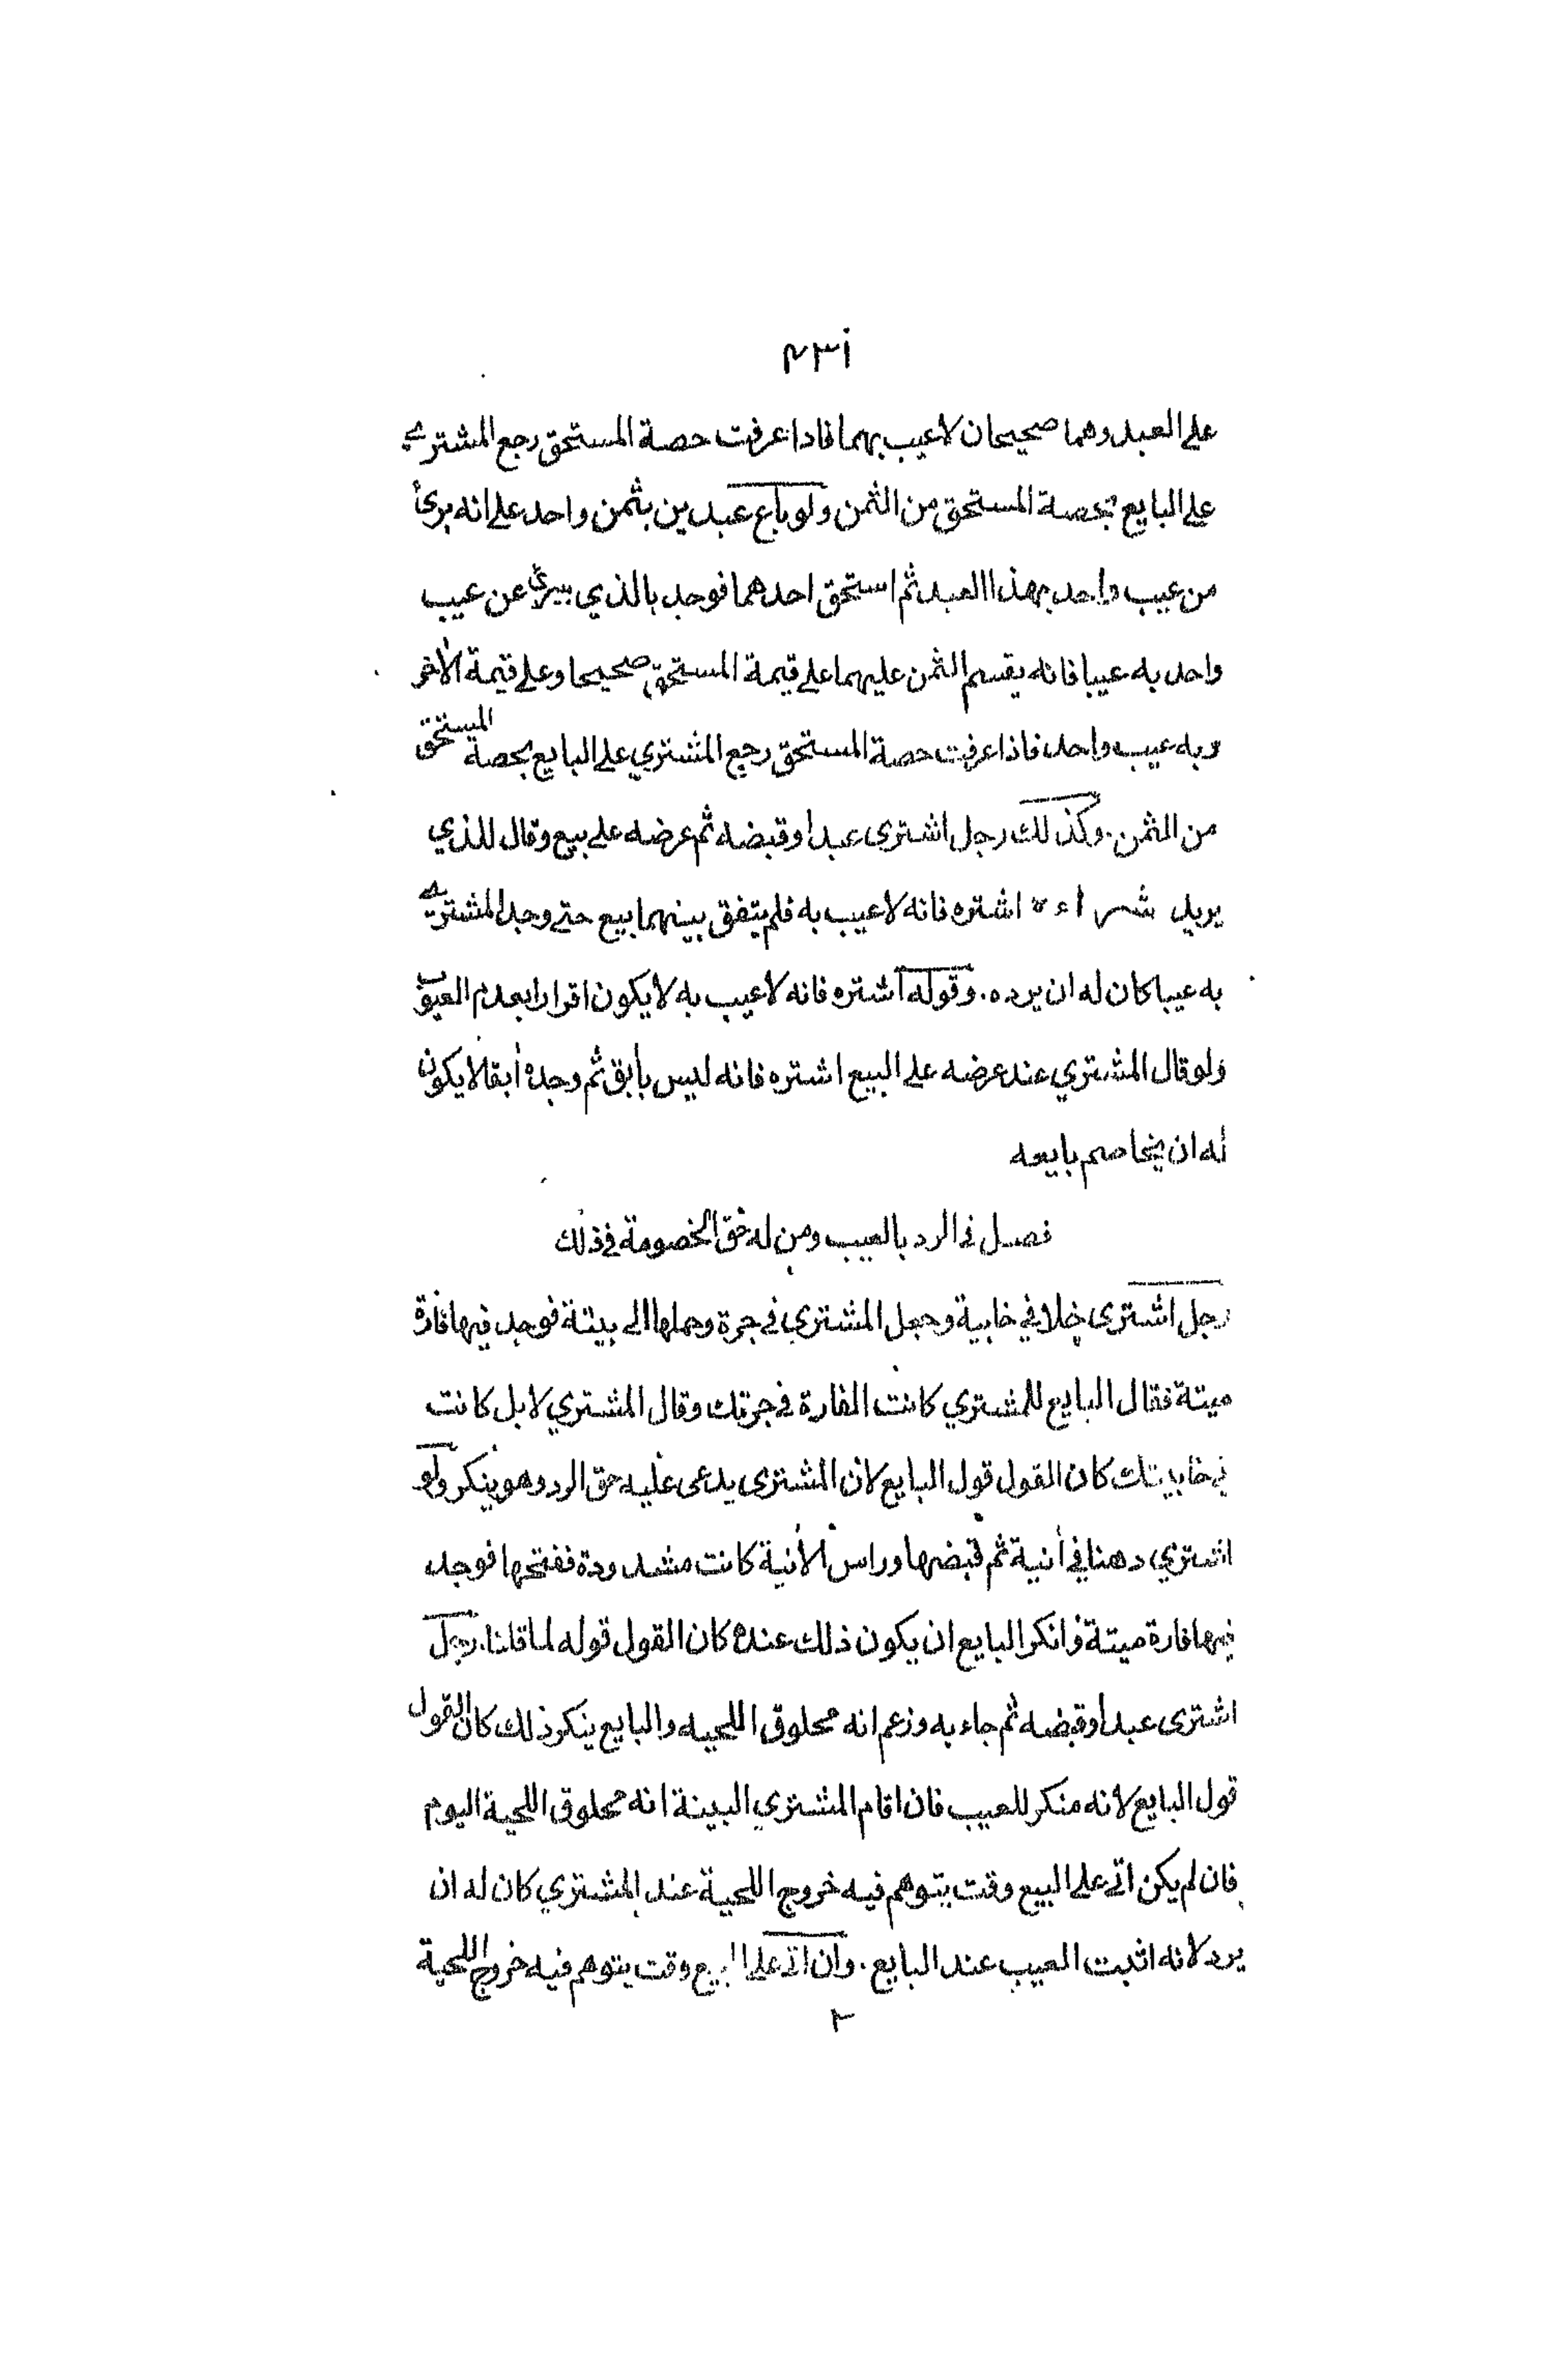 على العبد وهما صحيحان لاعيب بهما فاذا عرفت حصة المستحق رجع المشتري
على البايع بحصة المستحق من الثمن ولو باع عبدين بثمن واحد على انه برئ
من عيب واحد بهذا العبد ثم استحق احدهما فوجد بالذي بيرئ عن عيب
واحد به عيبا فانه يقسم الثمن عليهما على قيمة المستحق صحيحا وعلى قيمة الاخر
وبه عيب واحد فاذا عرفت حصة المستحق رجع المشتري على البايع بحصة المستحق
من الثمن. وكذلك رجل اشترى عبدا وقبضه ثم عرضه على بيع وقال للذي
يريد شراءه اشتره فانه لاعيب به فلم يتفق بينهما بيع حتى وجد المشتري
به عيبا كان له ان يرده. وقوله اشتره فانه لاعيب به لايكون اقرارا بعدم العيوب
ولو قال المشتري عند عرضه على البيع اشتره فانه ليس بأبق ثم وجده أبقا لايكون
له ان يخاصم بايعه
فصل في الرد بالعيب ومن له حق الخصومة في ذلك
رجل اشترى خلا في خابية وجعل المشتري في جرة وحملها الى بيتة فوجد فيها فارة
ميتة فقال البايع للمشتري كانت الفارة في جرتك وقال المشتري لا بل كانت
في خابيتك كان القول قول البايع لان المشترى يدعى عليه حق الرد وهو ينكر ولو
اشتري دهنا في أنية ثم قبضها وراس الأنية كانت مشدودة ففتحها فوجد
فيها فارة ميتة وانكر البايع ان يكون ذلك عنده كان القول قوله لما قلنا. رجل
اشترى عبدا وقبضه ثم جاء به وزعم انه محلوق اللحيه والبايع ينكر ذلك كان القول
قول البايع لانه منكر للعيب فان اقام المشتري البينة انه محلوق اللحية اليوم
فان لم يكن اتى على البيع وقت يتوهم فيه خروج اللحية عند المشتري كان له ان
يرد لانه اثبت العيب عند البايع. وان اتى على البيع وقت يتوهم فيه خروج اللحية